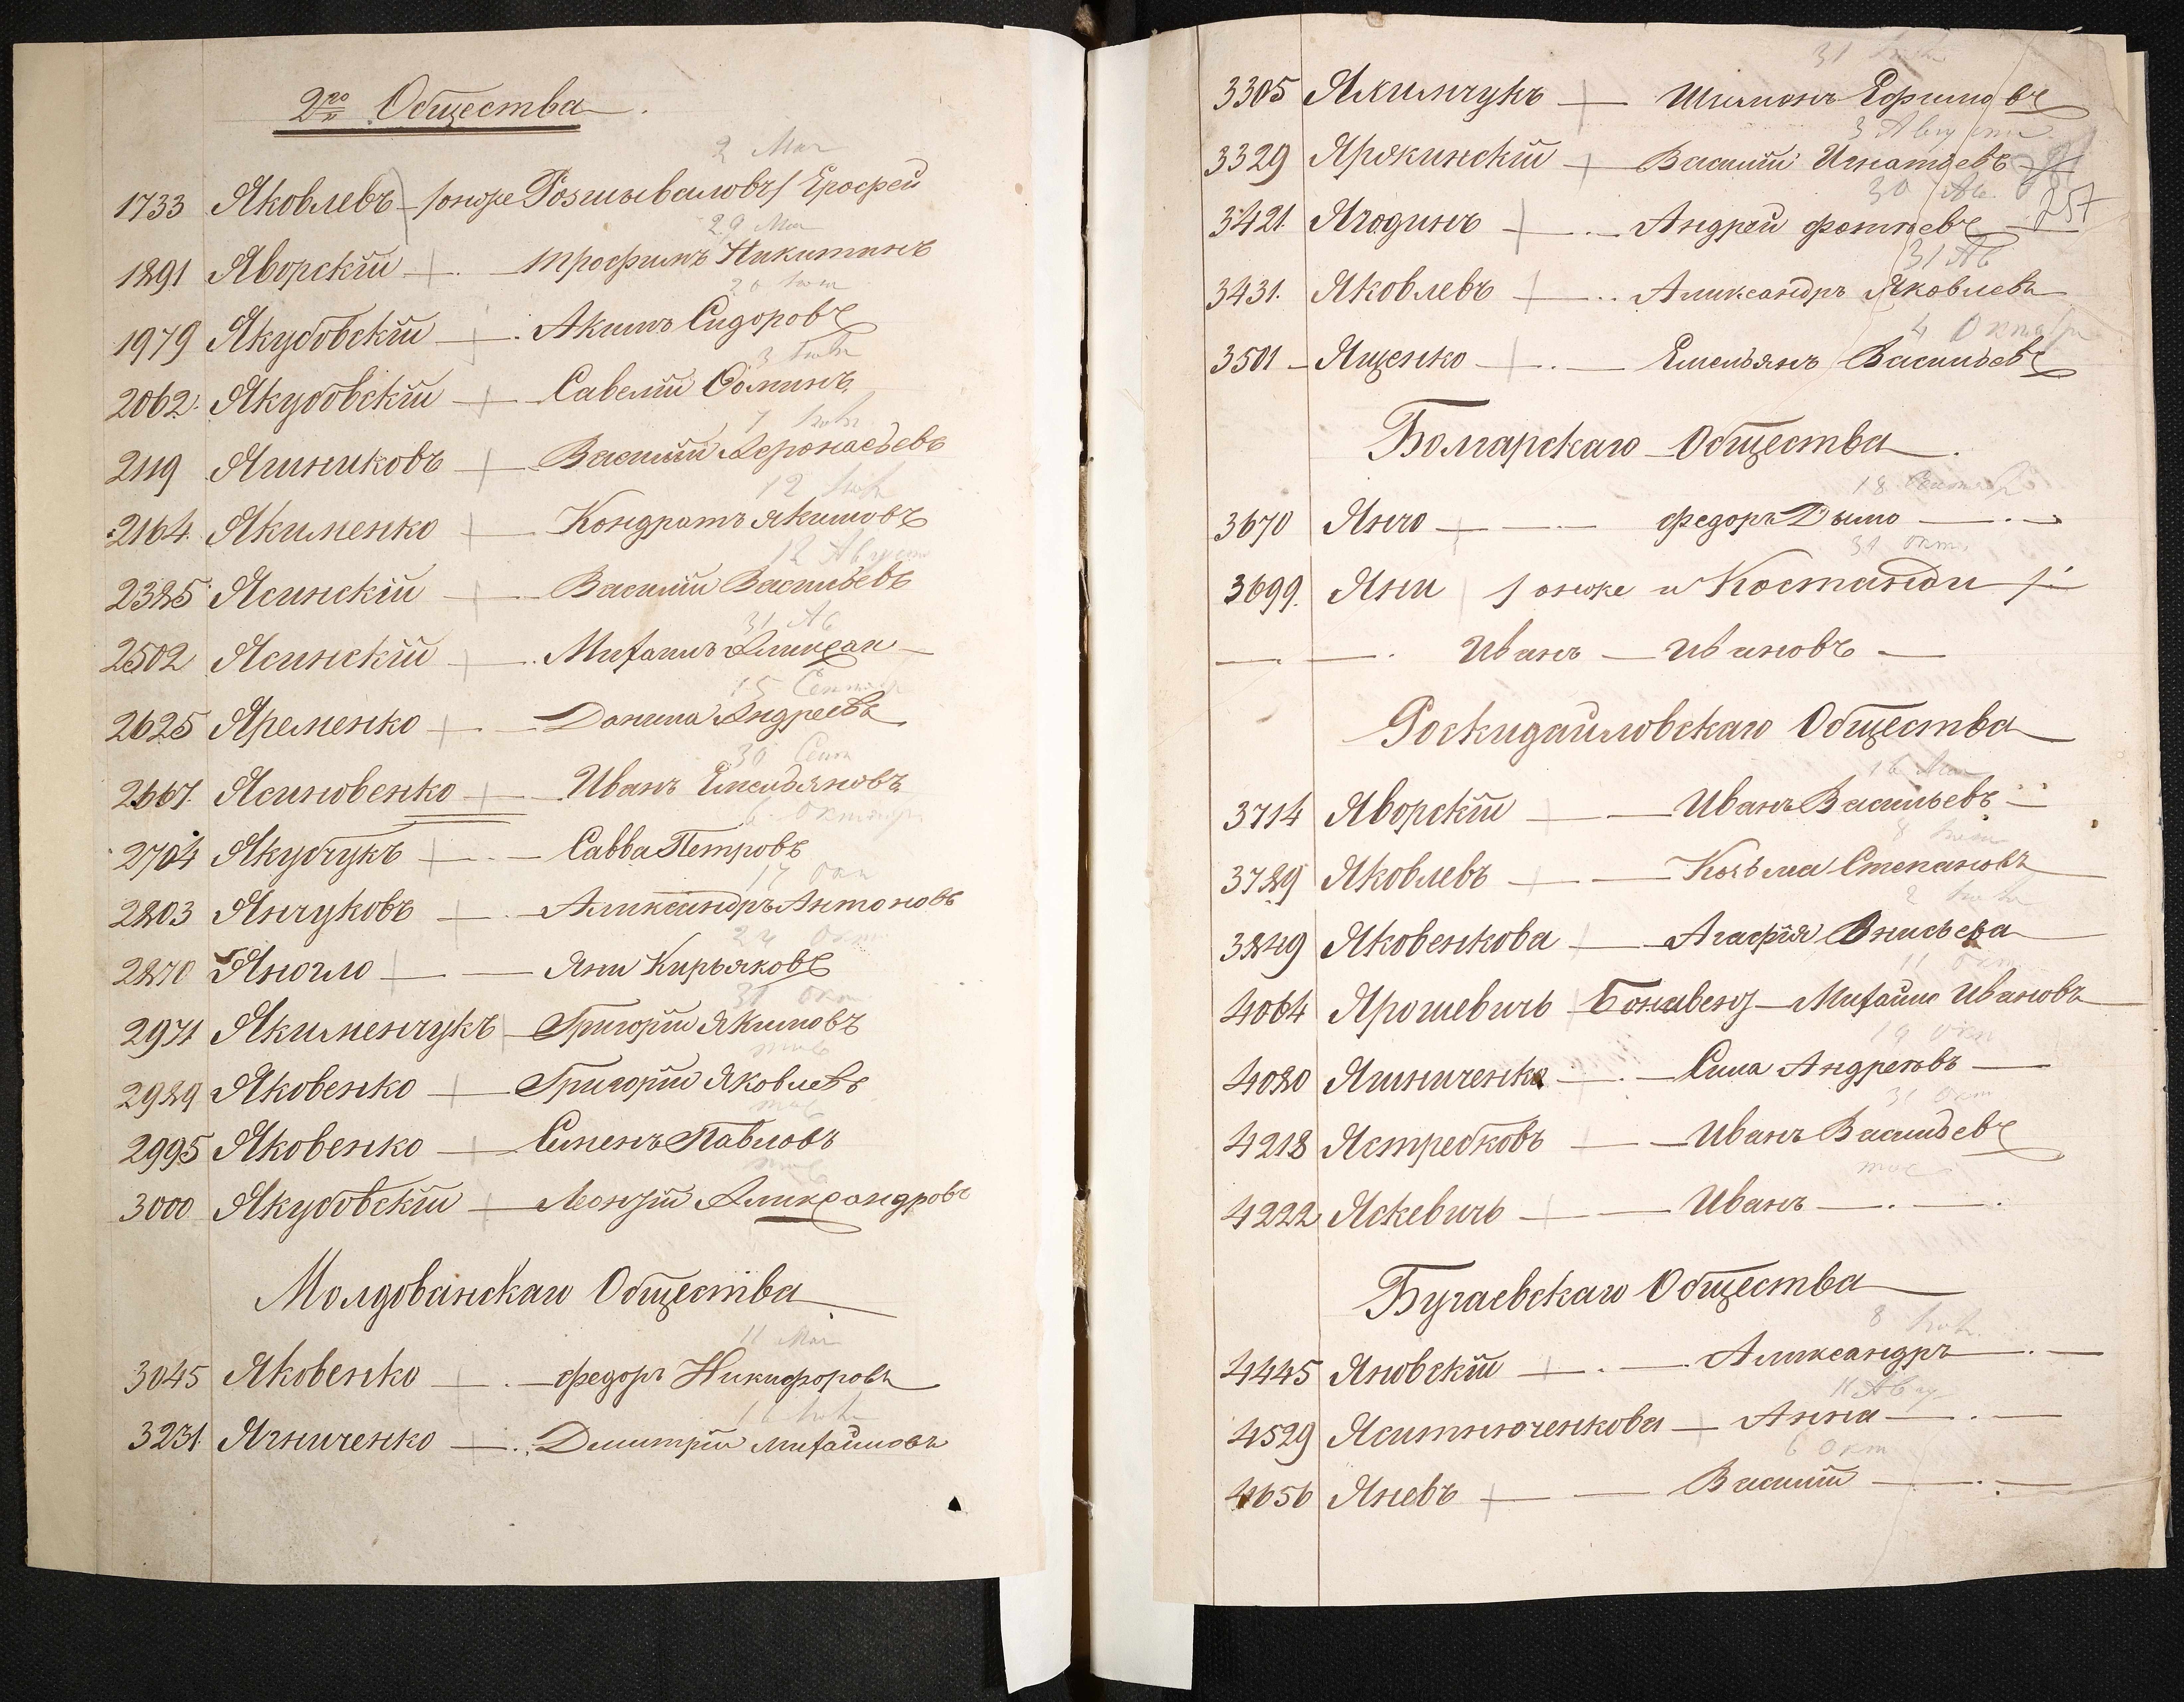 2го Общества.
2 Мая
1733 Яковлевъ /онже Розшываловъ/ Ерофей
29 Мая
1891 Яворскій Трофимъ Никитинъ
1979 Якубовскій Акимъ Сидоровъ
2062 Якубовскій Савелій Фоминъ
2119 Яшниковъ Василій Афонасьевъ
2164 Якименко Кондратъ Якимовъ
12 Августа
2325 Ясинскій Василій Васильевъ
31 Ав
2502 Ясинскій Михаилъ
15 Сентяб
2625 Яременко Данила Андреевъ
30 Сент
2667 Ясиновенко Иванъ Емельяновъ
6 Октября
2704 Якубчукъ Савва Петровъ
17 Окт
2803 Янчуковъ Александръ Антоновъ
Окт
2870 Яногло Яни Кирьяковъ
31 Окт
2971 Якименчукъ Григорій Якимовъ
2989 Яковенко Григорій Яковлевъ
2995 Яковенко Семенъ Павловъ
3000 Якубовскій Леонтій Александровъ
Молдованскаго Общества
11 Мая
3045 Яковенко Федоръ Никифоровъ
3231 Ягниченко Димитрій Михайловъ
3305 Якимчукъ Шимонъ Ефимовъ
3 Августа
3329 Яржинскій Василій Игнатьевъ
30 Ав. 257
3421 Ягодинъ Андрей Фотіевъ
31 Ав
3431 Яковлевъ Александръ Яковлевъ
4 Октября
3501 Ященко Емельянъ Васильевъ
Болгарскаго Общества.
18 Октября
3670 Янчо Федоръ Дымо
31 окт.
3699 Яни /онже и Костанди/
Иванъ Ивановъ
Роскидайловскаго Общества
16 Мая
3714 Яворскій Иванъ Васильевъ
3789 Яковлевъ Козьма Степановъ
3849 Яковенкова Агафія Анисьева
11 Окт
4064 Ярошевичъ Михайло Ивановъ
19 Окт
4080 Яшниченко Сила Андреевъ
31 Окт
4218 Ястребковъ Иванъ Васильевъ
4222 Яскевичъ Иванъ
Бугаевскаго Общества
4445 Яновскій Александръ
11 Авгу
4529 Яситнюченкова Анна
6 Окт
4656 Яневъ Василій